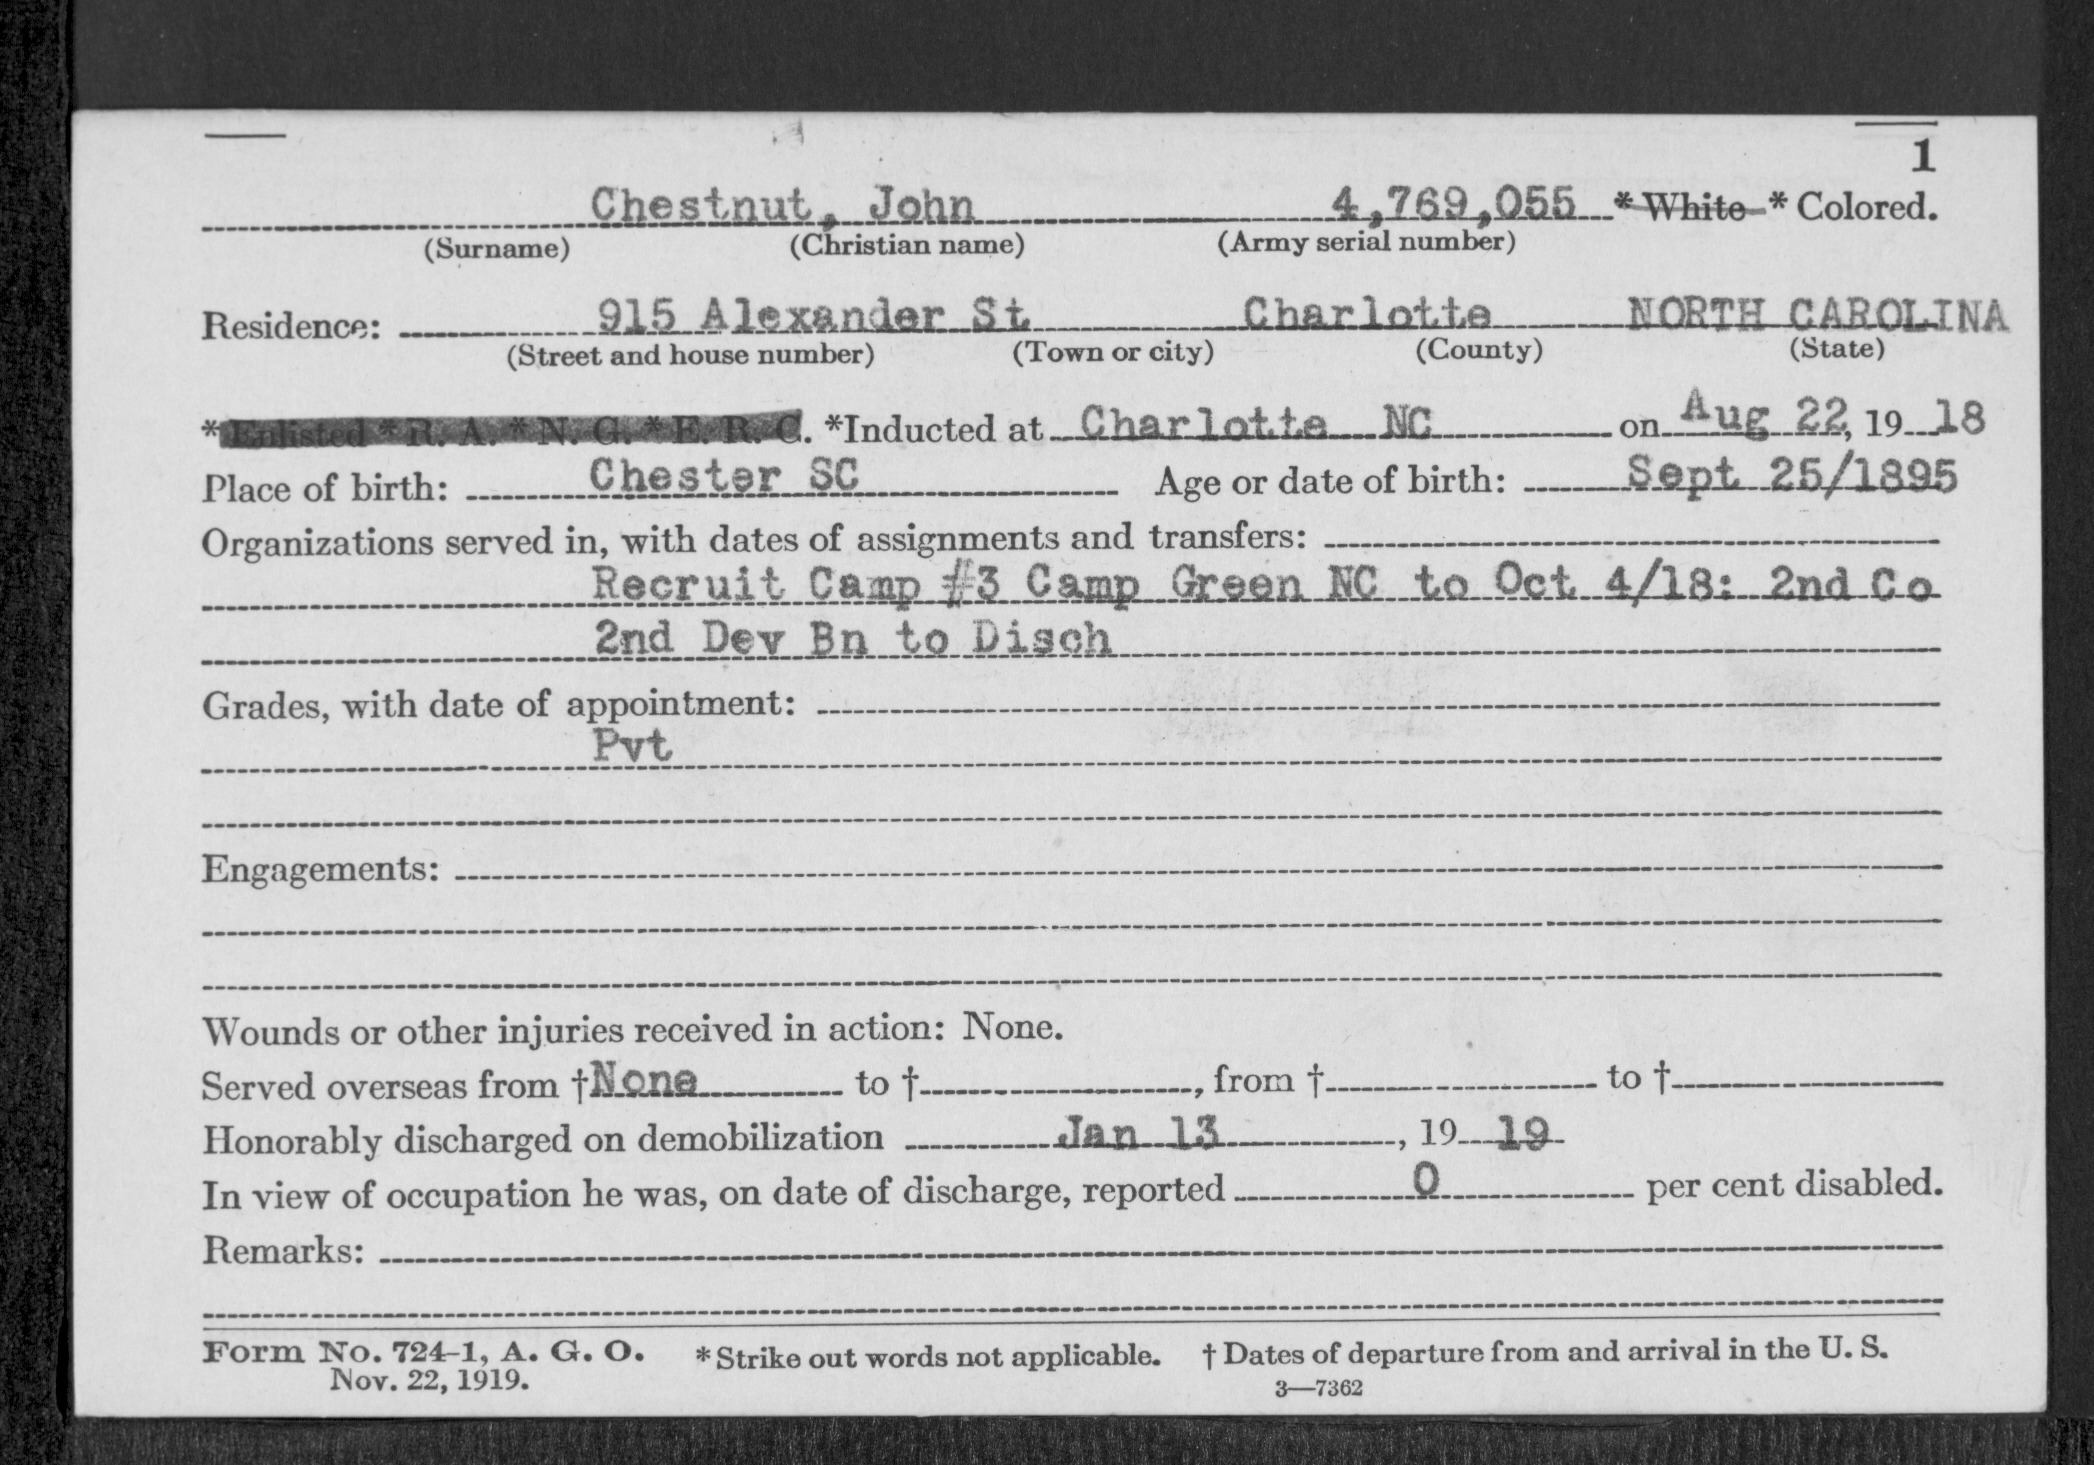 1
Chestnut, John 4,769,055 * White * Colored.
(Surname) (Christian name) (Army serial number)
Residence: 915 Alexander St Charlotte NORTH CAROLINA
(Street and house number) (Town or city) (County) (State)
* Enlisted * R. A. * N. G. * E. R. C. *Inducted at Charlotte NC on Aug 22, 19 18
Place of birth: Chester SC Age or date of birth: Sept 25/1895
Organizations served in, with dates of assignments and transfers:
Recruit Camp #3 Camp Green NC to Oct 4/18: 2nd Co
2nd Dev Bn to Disch
Grades, with date of appointment:
Pvt
Engagements:
Wounds or other injuries received in action: None.
Served overseas from † None to †, from † to †
Honorably discharged on demobilization Jan 13, 19 19
In view of occupation he was, on date of discharge, reported 0 per cent disabled.
Remarks:
Form No. 724-1, A. G. O. * Strike out words not applicable. † Dates of departure from and arrival in the U. S.
Nov. 22, 1919. 3—7362